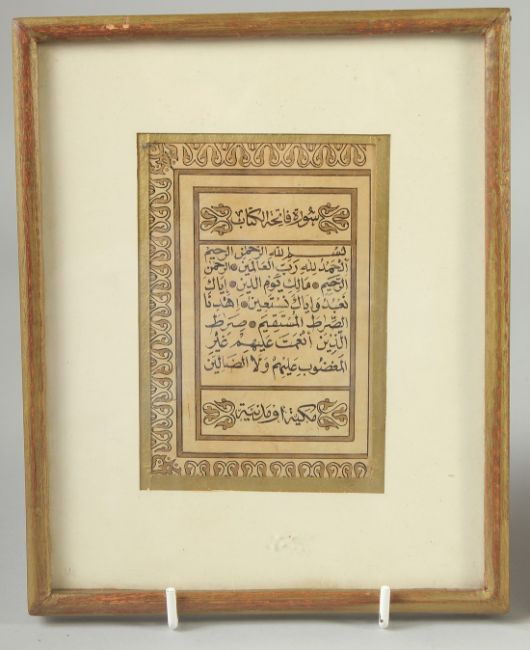 سورة فاتحة الكتاب
بسم الله الرحمن الرحيم
الحمد لله رب العالمين الرحمن
الرحيم مالك يوم الدين إياك
نعبد وإياك نستعين اهدنا
الصراط المستقيم صراط
الذين أنعمت عليهم غير
المغضوب عليهم ولا الضالين
مكية أو مدنية